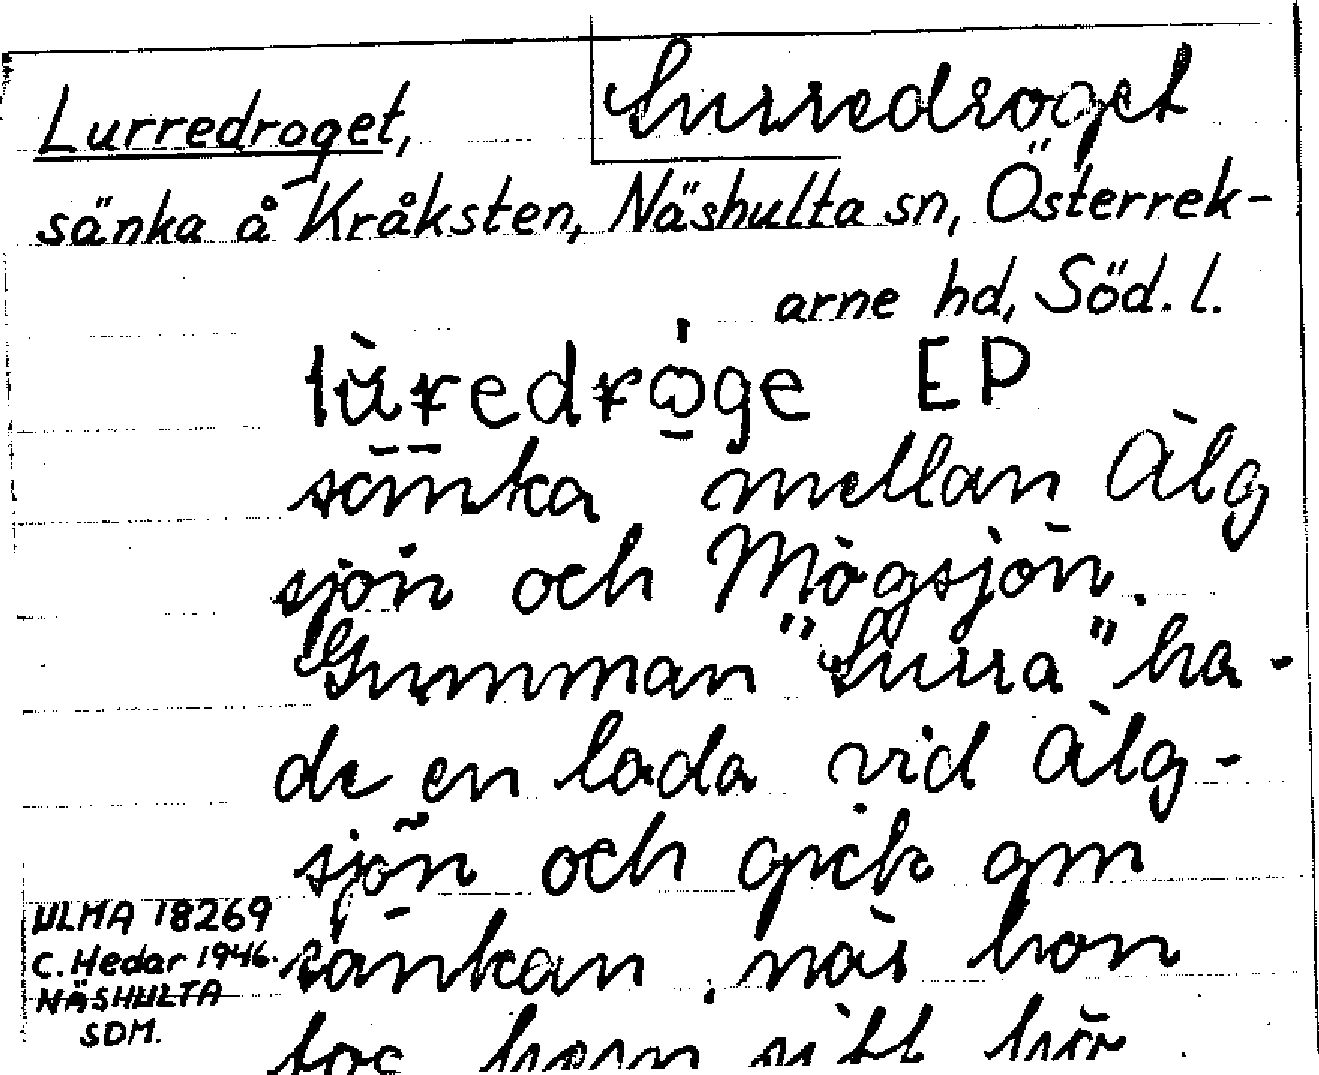 Lurredroget,
Lurredroget
sänka å Kråksten, Näshulta sn, Österrek-
arne hd, Söd. l.
EP
sänka mellan Älg
sjön och Mögsjön.
Gumman "Lurra" ha-
de en lada vid Älg-
sjön och gick om
sänkan, när hon
tog hem sitt hö.
ULMA 18269
C. Hedar 1946.
NÄSHULTA
SDM.